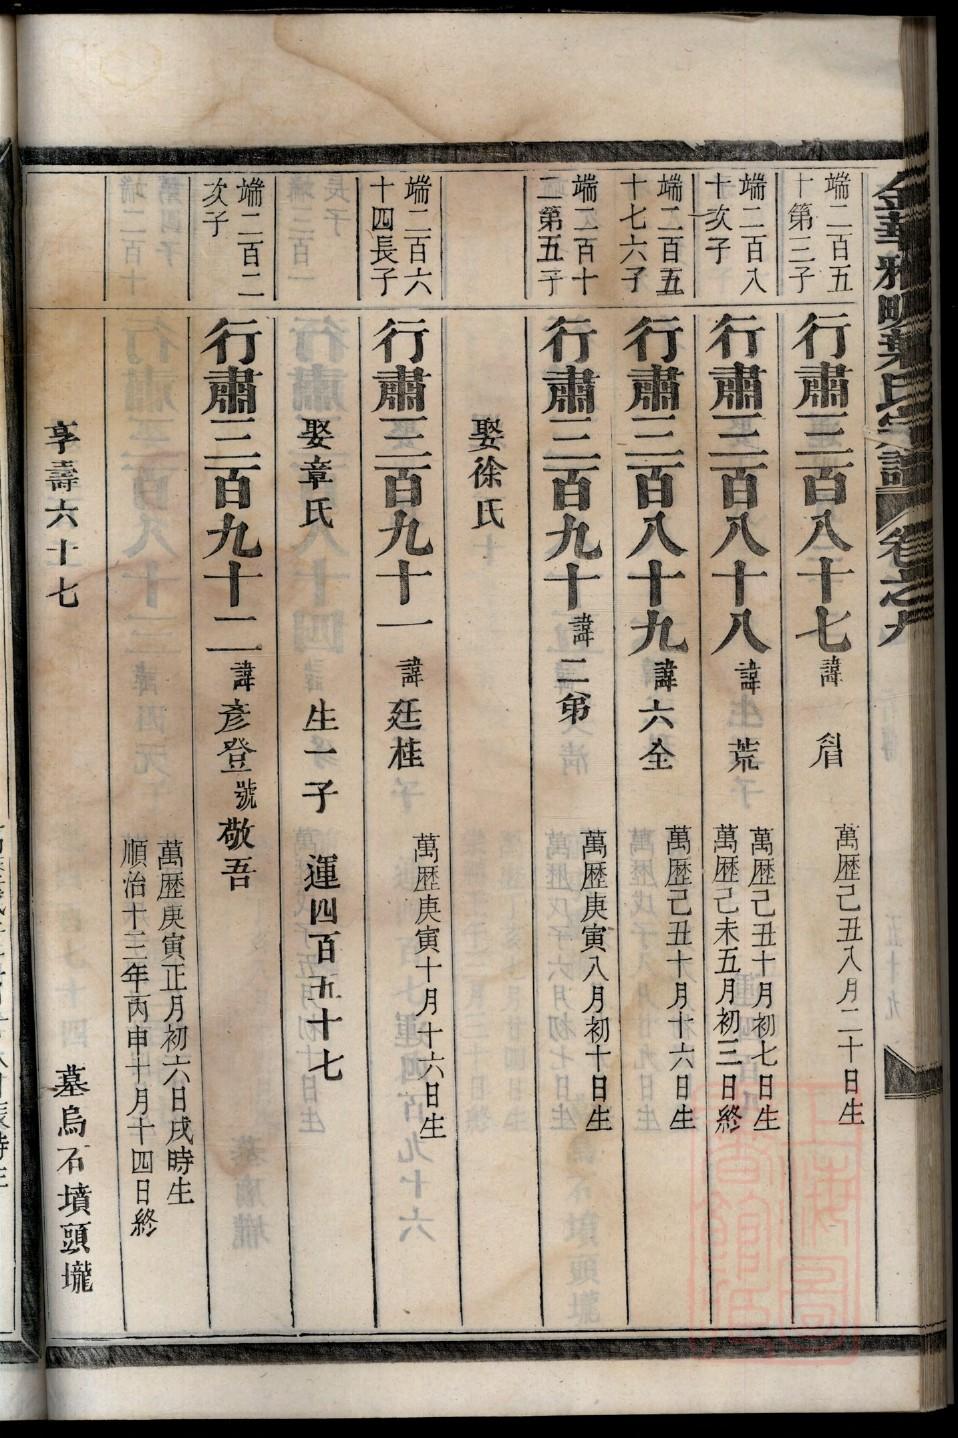 金華雅畈葉氏宗譜 卷之九
端二百五十第三子
行肅三百八十七 諱 眉 萬歷己丑八月二十日生
端二百八十次子
行肅三百八十八 諱 荒 萬歷己丑十月初七日生
萬歷己未五月初三日終
端二百五十七六子
行肅三百八十九 諱六全 萬歷己丑十月十六日生
端二百十二第五子
行肅三百九十 諱二第 萬歷庚寅八月初十日生
娶徐氏
端二百六十四長子
行肅三百九十一 諱廷桂 萬歷庚寅十月十六日生
娶章氏 生一子 運四百五十七
端二百二次子
行肅三百九十二 諱彥登號敬吾
萬歷庚寅正月初六日戌時生
順治十三年丙申十月十四日終
享壽六十七 墓烏石墳頭壠